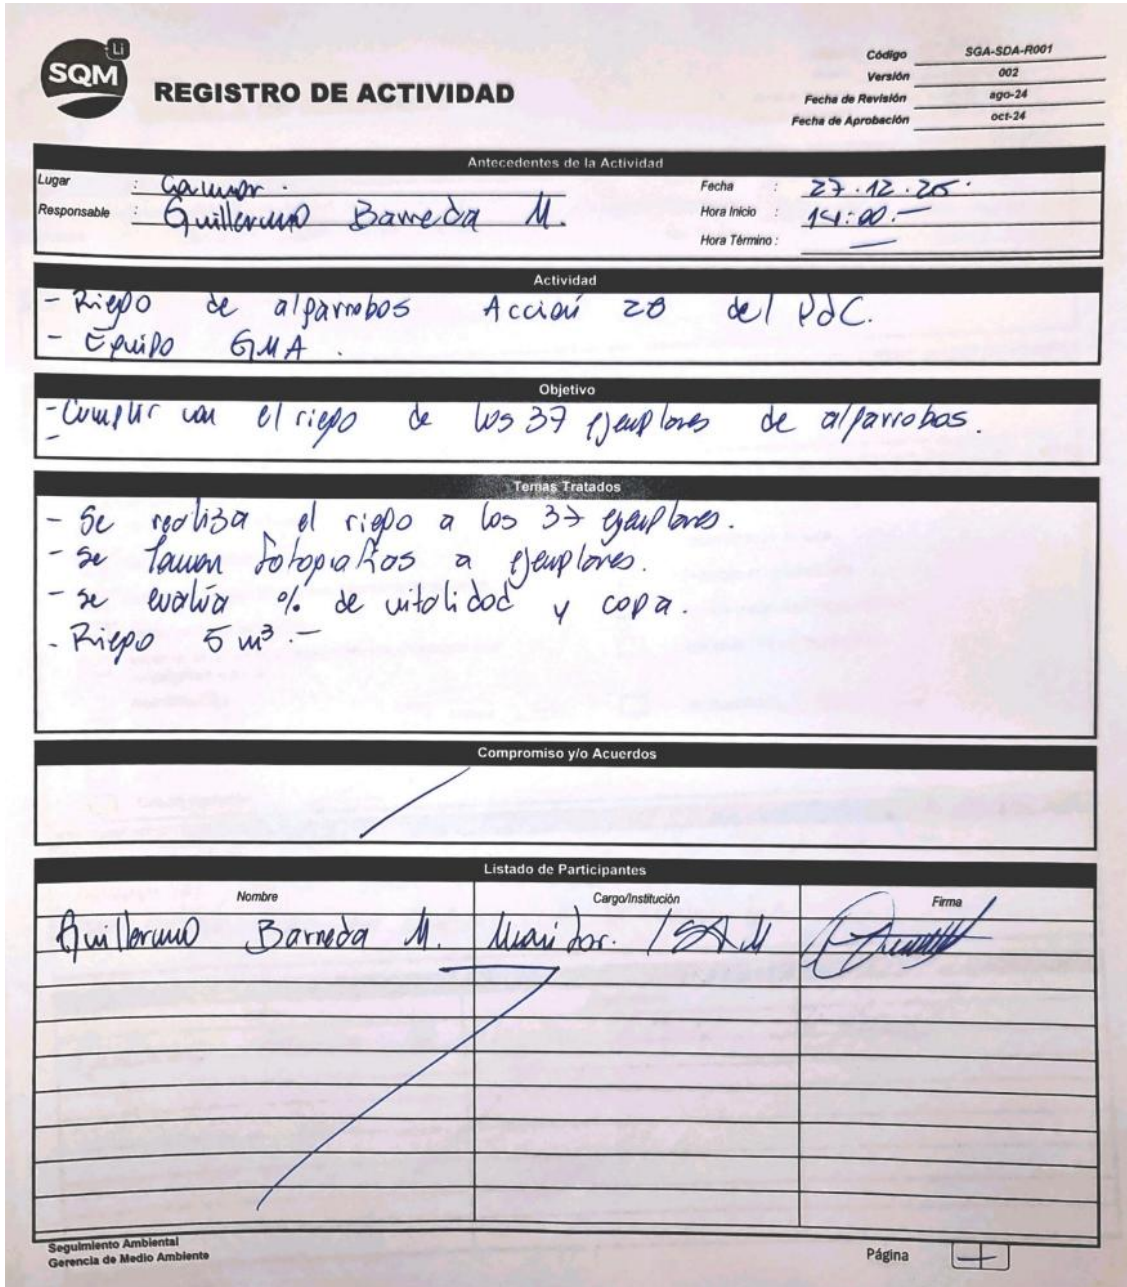 Li
SQM
REGISTRO DE ACTIVIDAD
Código SGA-SDA-R001
Versión 002
Fecha de Revisión ago-24
Fecha de Aprobación oct-24
Antecedentes de la Actividad
Lugar : Camar.
Fecha : 27.12.25.
Responsable : Guillermo Barreda M.
Hora Inicio : 14:00.-
Hora Término : —
Actividad
- Riego de algarrobos Acción 28 del PdC.
- Equipo GMA.
Objetivo
- Cumplir con el riego de los 37 ejemplares de algarrobos.
-
Temas Tratados
- Se realiza el riego a los 37 ejemplares.
- Se toman fotografías a ejemplares.
- se evalúa % de vitalidad y copa.
- Riego 5 m³.-
Compromiso y/o Acuerdos
Listado de Participantes
Nombre Cargo/Institución Firma
Guillermo Barreda M. Monitor. / SQM
Seguimiento Ambiental
Gerencia de Medio Ambiente
Página